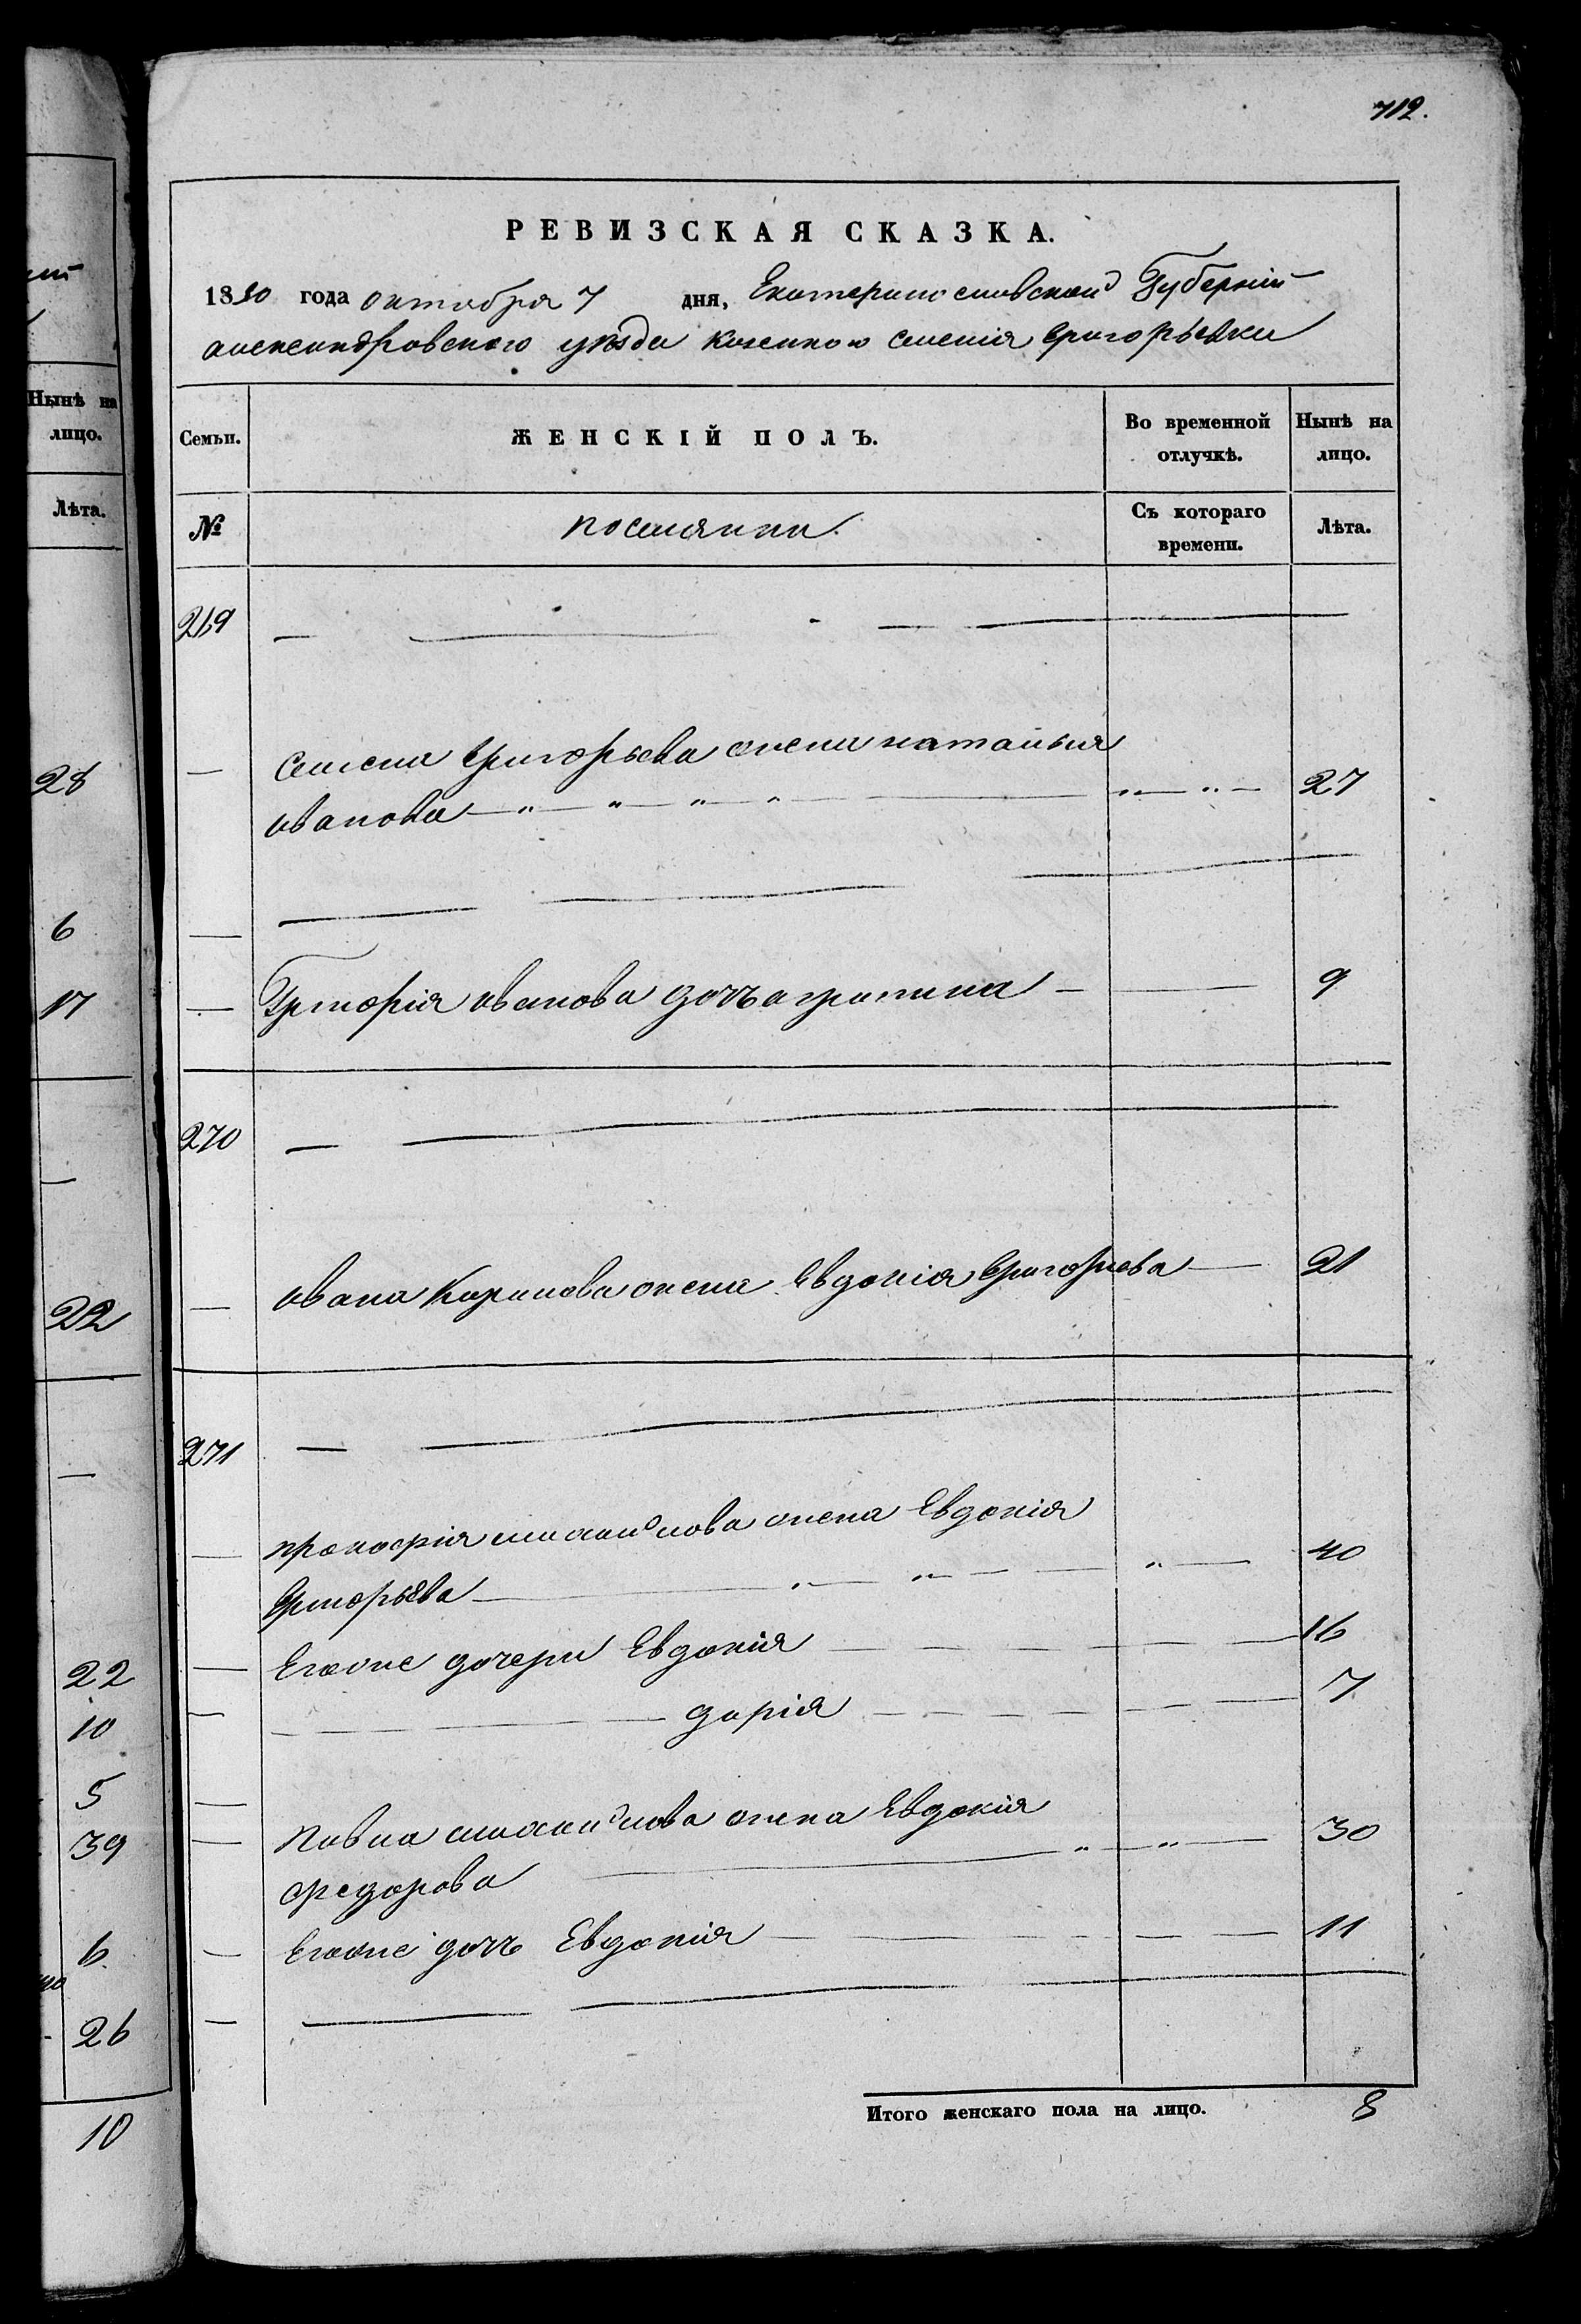 712.
РЕВИЗСКАЯ СКАЗКА.
1850 года октября 7 дня, Екатеринославской Губерніи
александровского уѣзда казенного селенія Григорьевки
Семьи. ЖЕНСКІЙ ПОЛЪ. Во временной отлучкѣ. Нынѣ на лицо.
№ поселянки Съ котораго времени. Лѣта.
269
Семена Григорьева жена наталья
иванова 27
Григорія иванова дочь агрипина 9
270
ивана Карпова жена Евдокія Григорьева 21
271
прокофія михайлова жена Евдокія
Григорьева 40
Егоже дочери Евдокія 16
дарія 7
Павла михайлова жена Евдокія
федорова 30
Егоже дочь Евдокія 11
Итого женскаго пола на лицо. 8
Нынѣ на
лицо.
Лѣта.
28
6
17
22
22
10
5
39
6
26
10